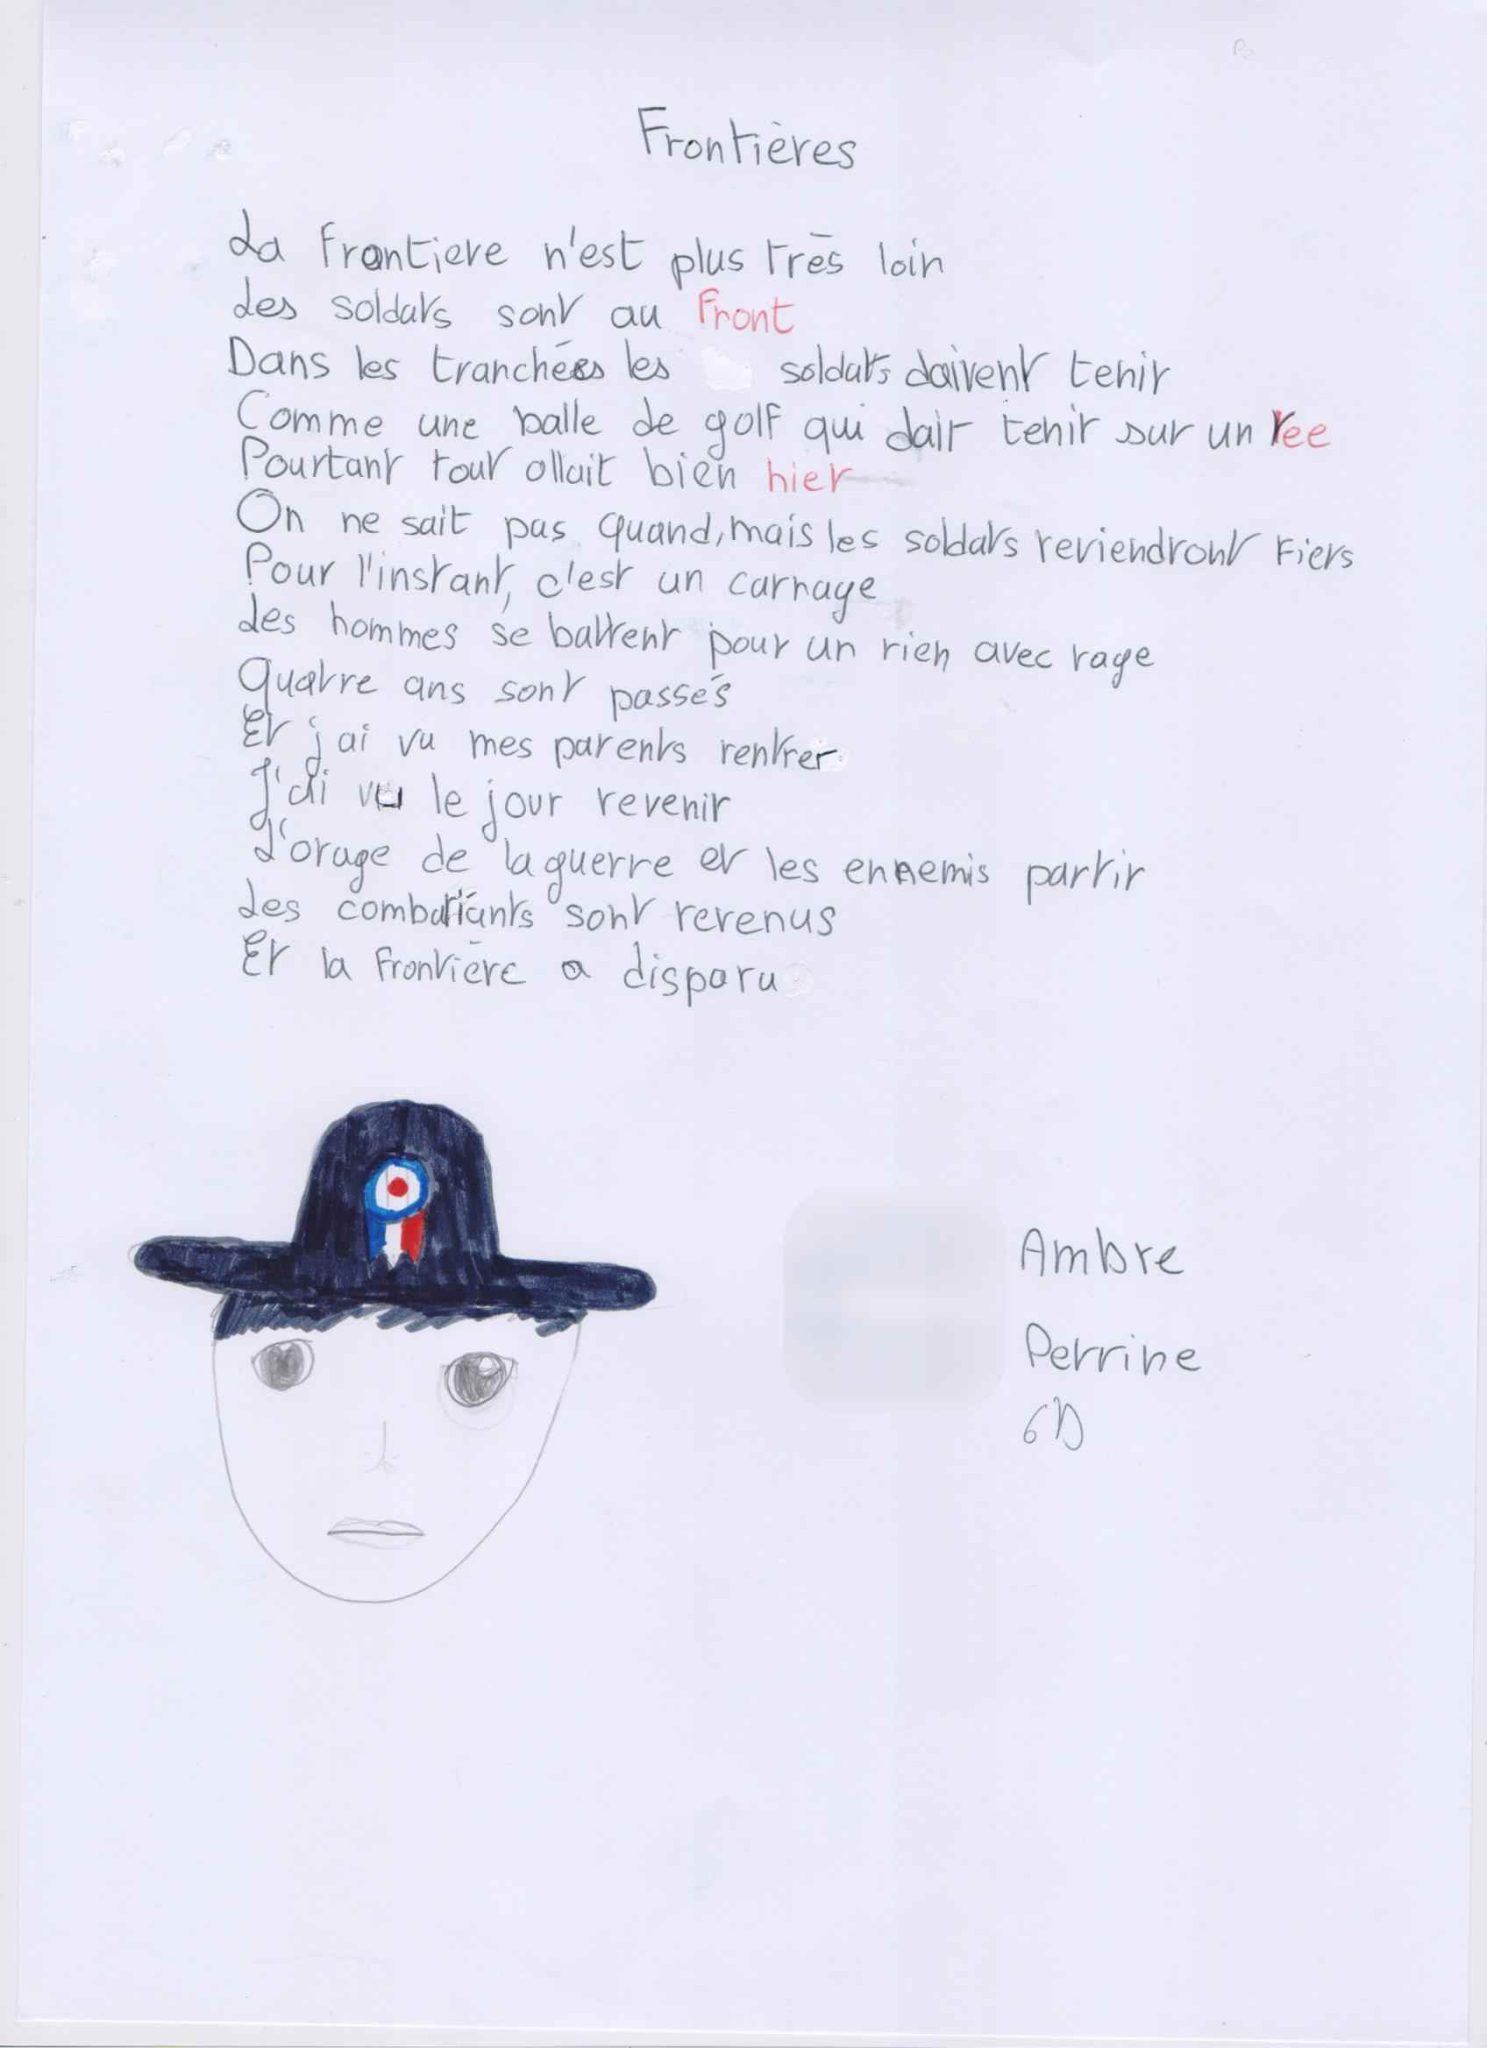 Frontières
La frontière n'est plus très loin
Les soldats sont au front
Dans les tranchées les soldats doivent tenir
Comme une balle de golf qui doit tenir sur un tee
Pourtant tout allait bien hier
On ne sait pas quand, mais les soldats reviendront fiers
Pour l'instant, c'est un carnage
Les hommes se battent pour un rien avec rage
Quatre ans sont passés
Et j'ai vu mes parents rentrer
J'ai vu le jour revenir
L'orage de la guerre et les ennemis partir
Les combattants sont revenus
Et la frontière a disparu
Ambre
Perrine
6D